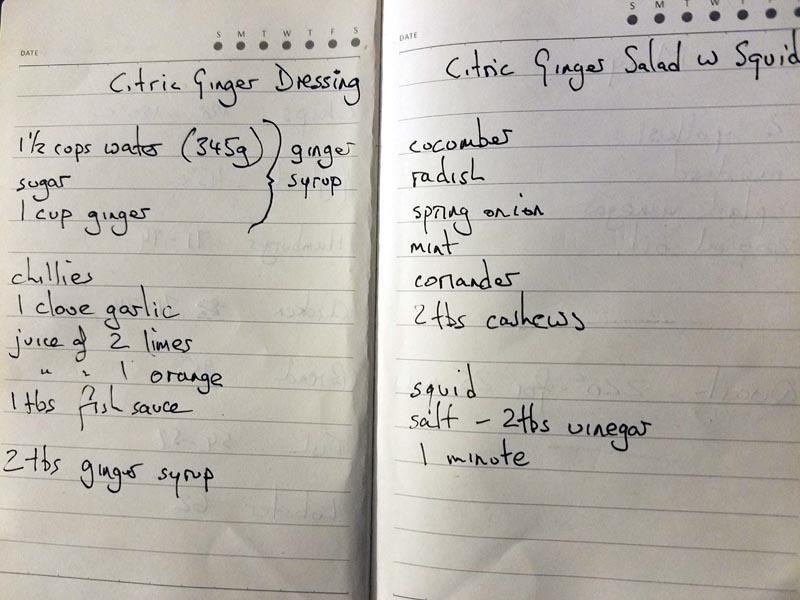 S M T W T F S
DATE
Citric Ginger Dressing
1½ cups water (345g)
sugar
1 cup ginger
ginger
syrup
chillies
1 clove garlic
juice of 2 limes
" " 1 orange
1 tbs fish sauce
2 tbs ginger syrup
S M T W T F
DATE
Citric Ginger Salad w Squid
cocomber
radish
spring onion
mint
coriander
2 tbs cashews
squid
salt - 2 tbs vinegar
1 minute